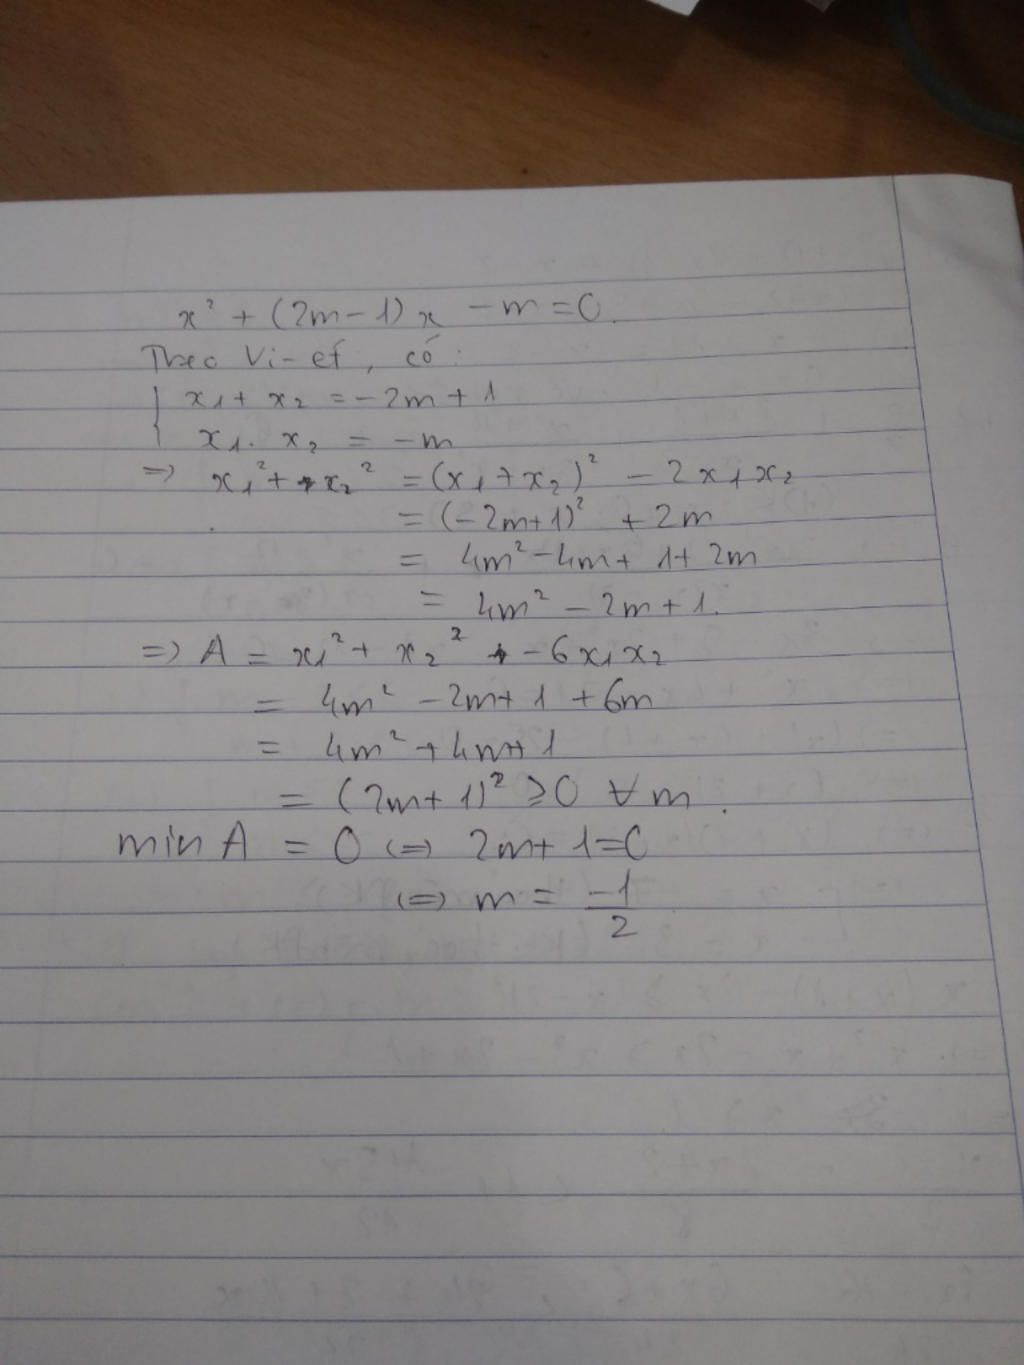 x² + (2m-1)x - m = 0.
Theo Vi-et, có:
x₁ + x₂ = -2m + 1
x₁. x₂ = -m
=> x₁² + x₂² = (x₁ + x₂)² - 2x₁x₂
= (-2m+1)² + 2m
= 4m² - 4m + 1 + 2m
= 4m² - 2m + 1.
=> A = x₁² + x₂² - 6x₁x₂
= 4m² - 2m + 1 + 6m
= 4m² + 4m + 1
= (2m + 1)² ≥ 0 ∀m.
min A = 0 <=> 2m + 1 = 0
<=> m = -1/2